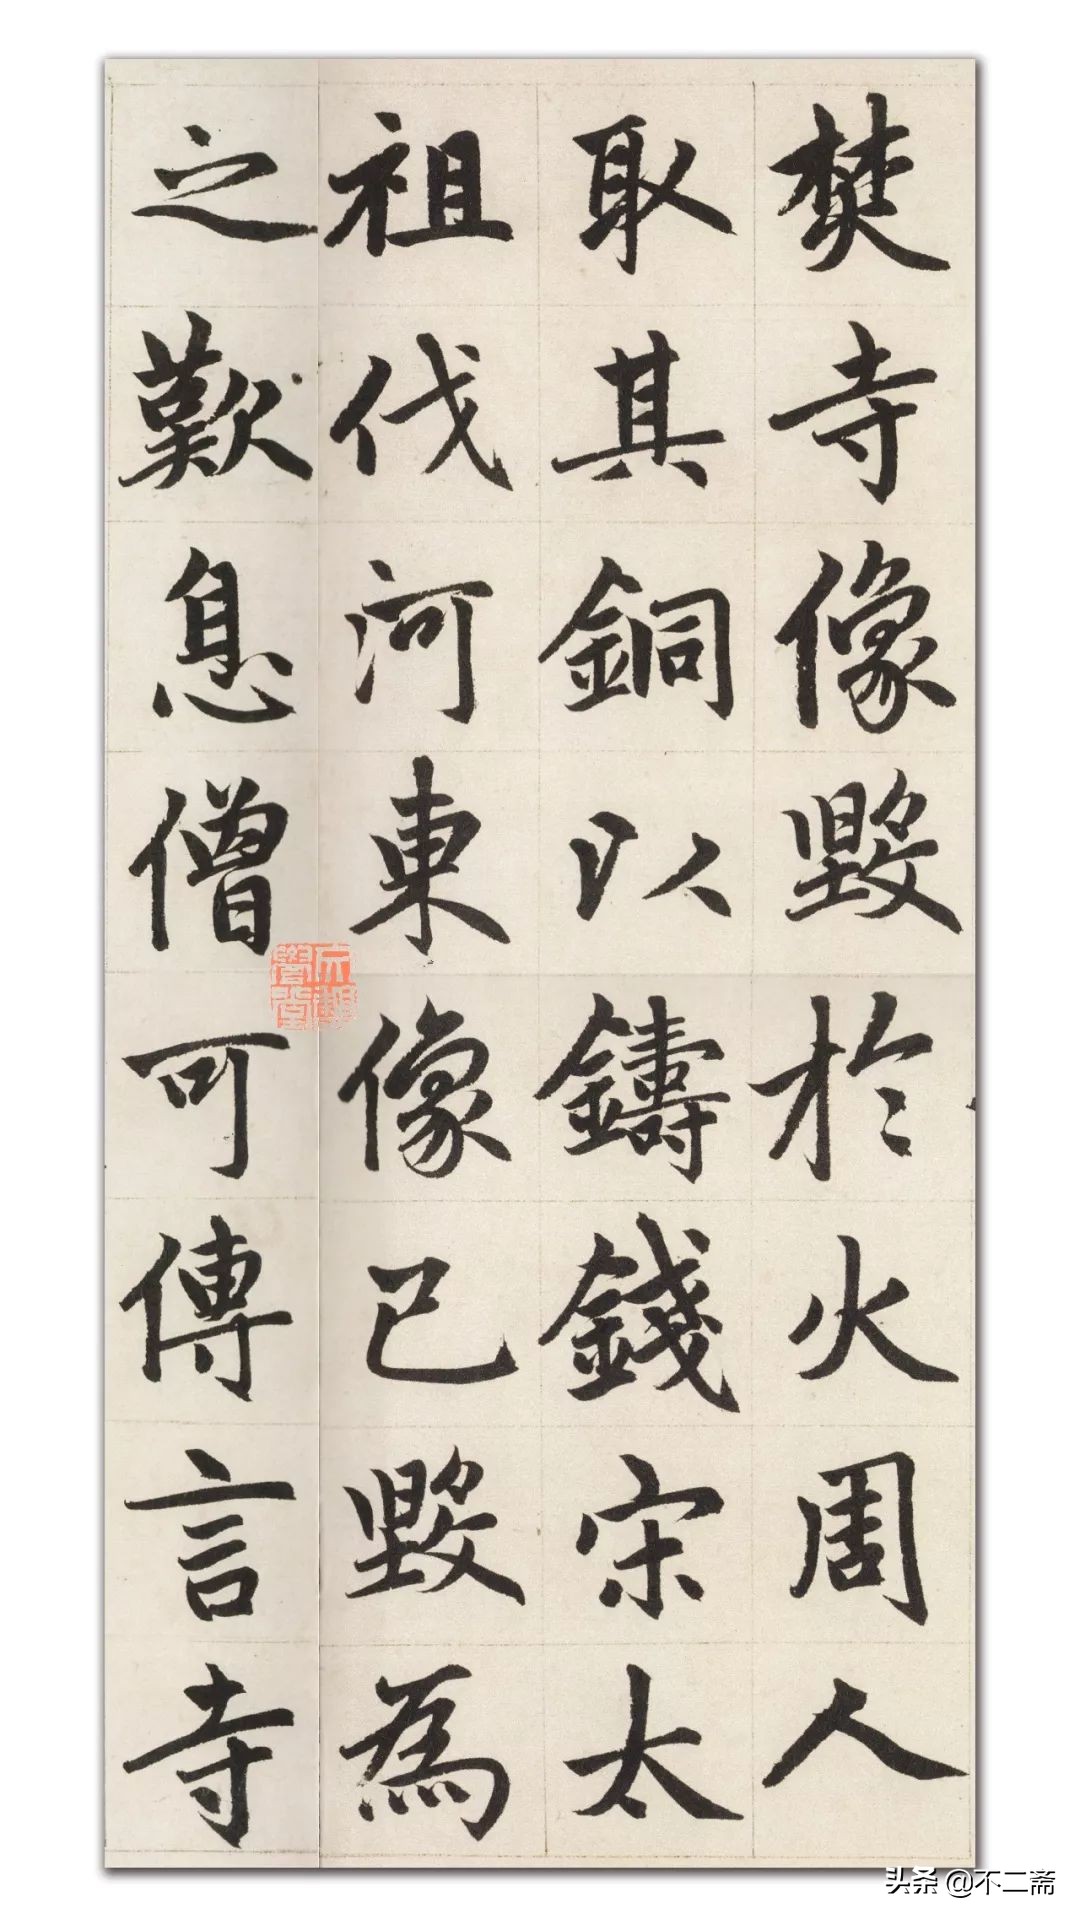 焚寺像毀於火周人
取其銅以鑄錢宋太
祖伐河東像已毀為
之歎息僧可傳言寺
头条 @不二斋